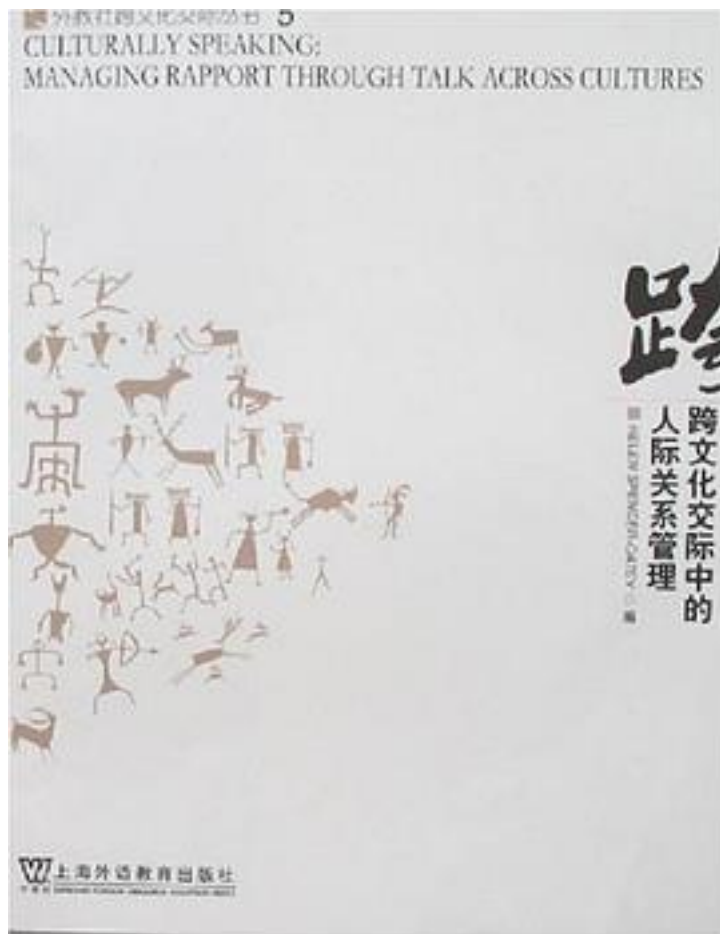 外教社跨文化交际丛书 5
CULTURALLY SPEAKING:
MANAGING RAPPORT THROUGH TALK ACROSS CULTURES
跨
跨文化交际中的
人际关系管理
编
上海外语教育出版社
外教社